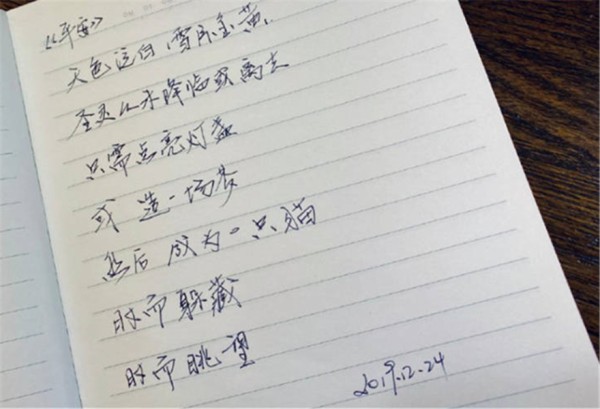 《平安》
天色泛白 雪月金黄
圣灵从未降临或离去
只需点亮灯盏
或 造一场梦
然后 成为一只猫
时而躲藏
时而眺望
2019.12.24